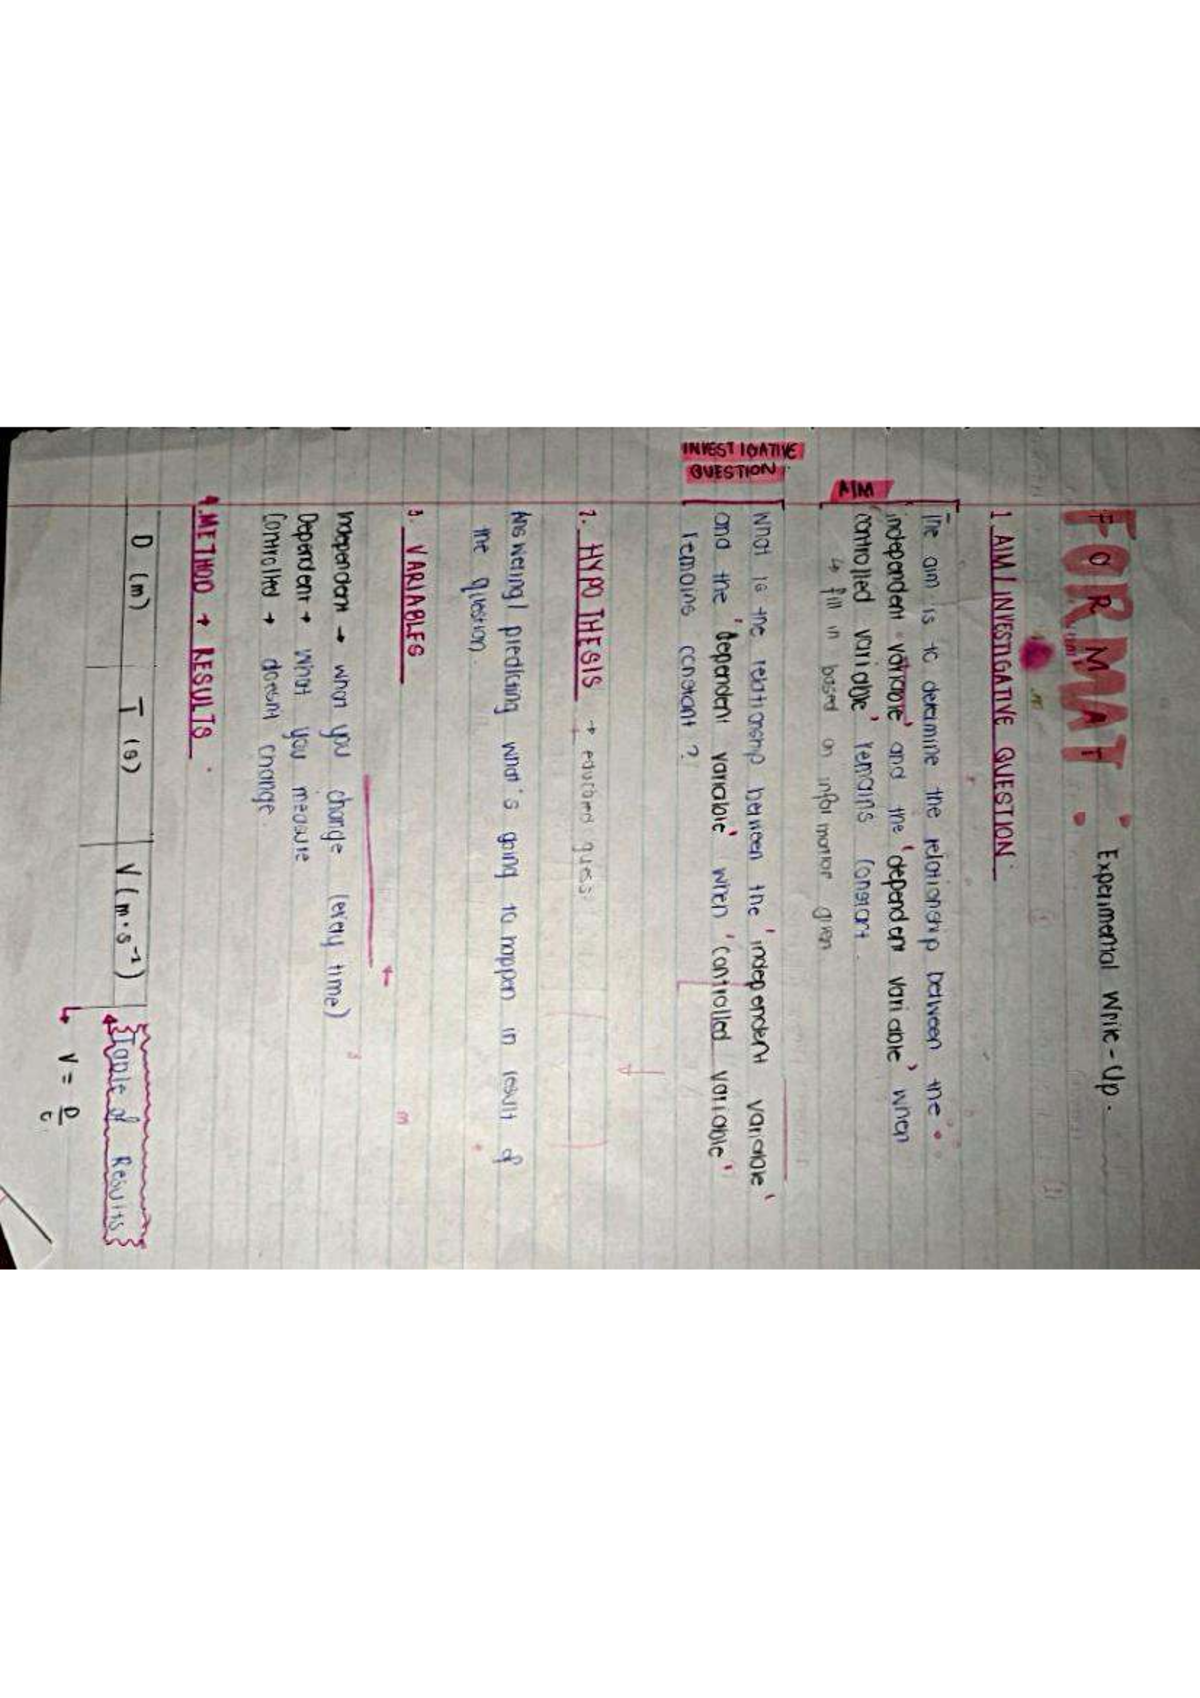 FORMAT : Experimental Write-Up.
1. AIM / INVESTIGATIVE QUESTION:
The aim is to determine the relationship between the
'independent variable' and the 'dependent variable' when
'controlled variable' remains constant.
AIM
↳ fill in based on information given
INVESTIGATIVE
QUESTION:
What is the relationship between the 'independent variable'
and the 'dependent variable' when 'controlled variable'
remains constant?
2. HYPOTHESIS → educated guess
Answering/ predicting what's going to happen in result of
the question.
3. VARIABLES
Independent → what you change (every time)
Dependent → what you measure
Controlled → doesn't change.
4. METHOD → RESULTS.
D (m) T (s) V (m·s⁻¹) Table of Results
↳ V = D/t